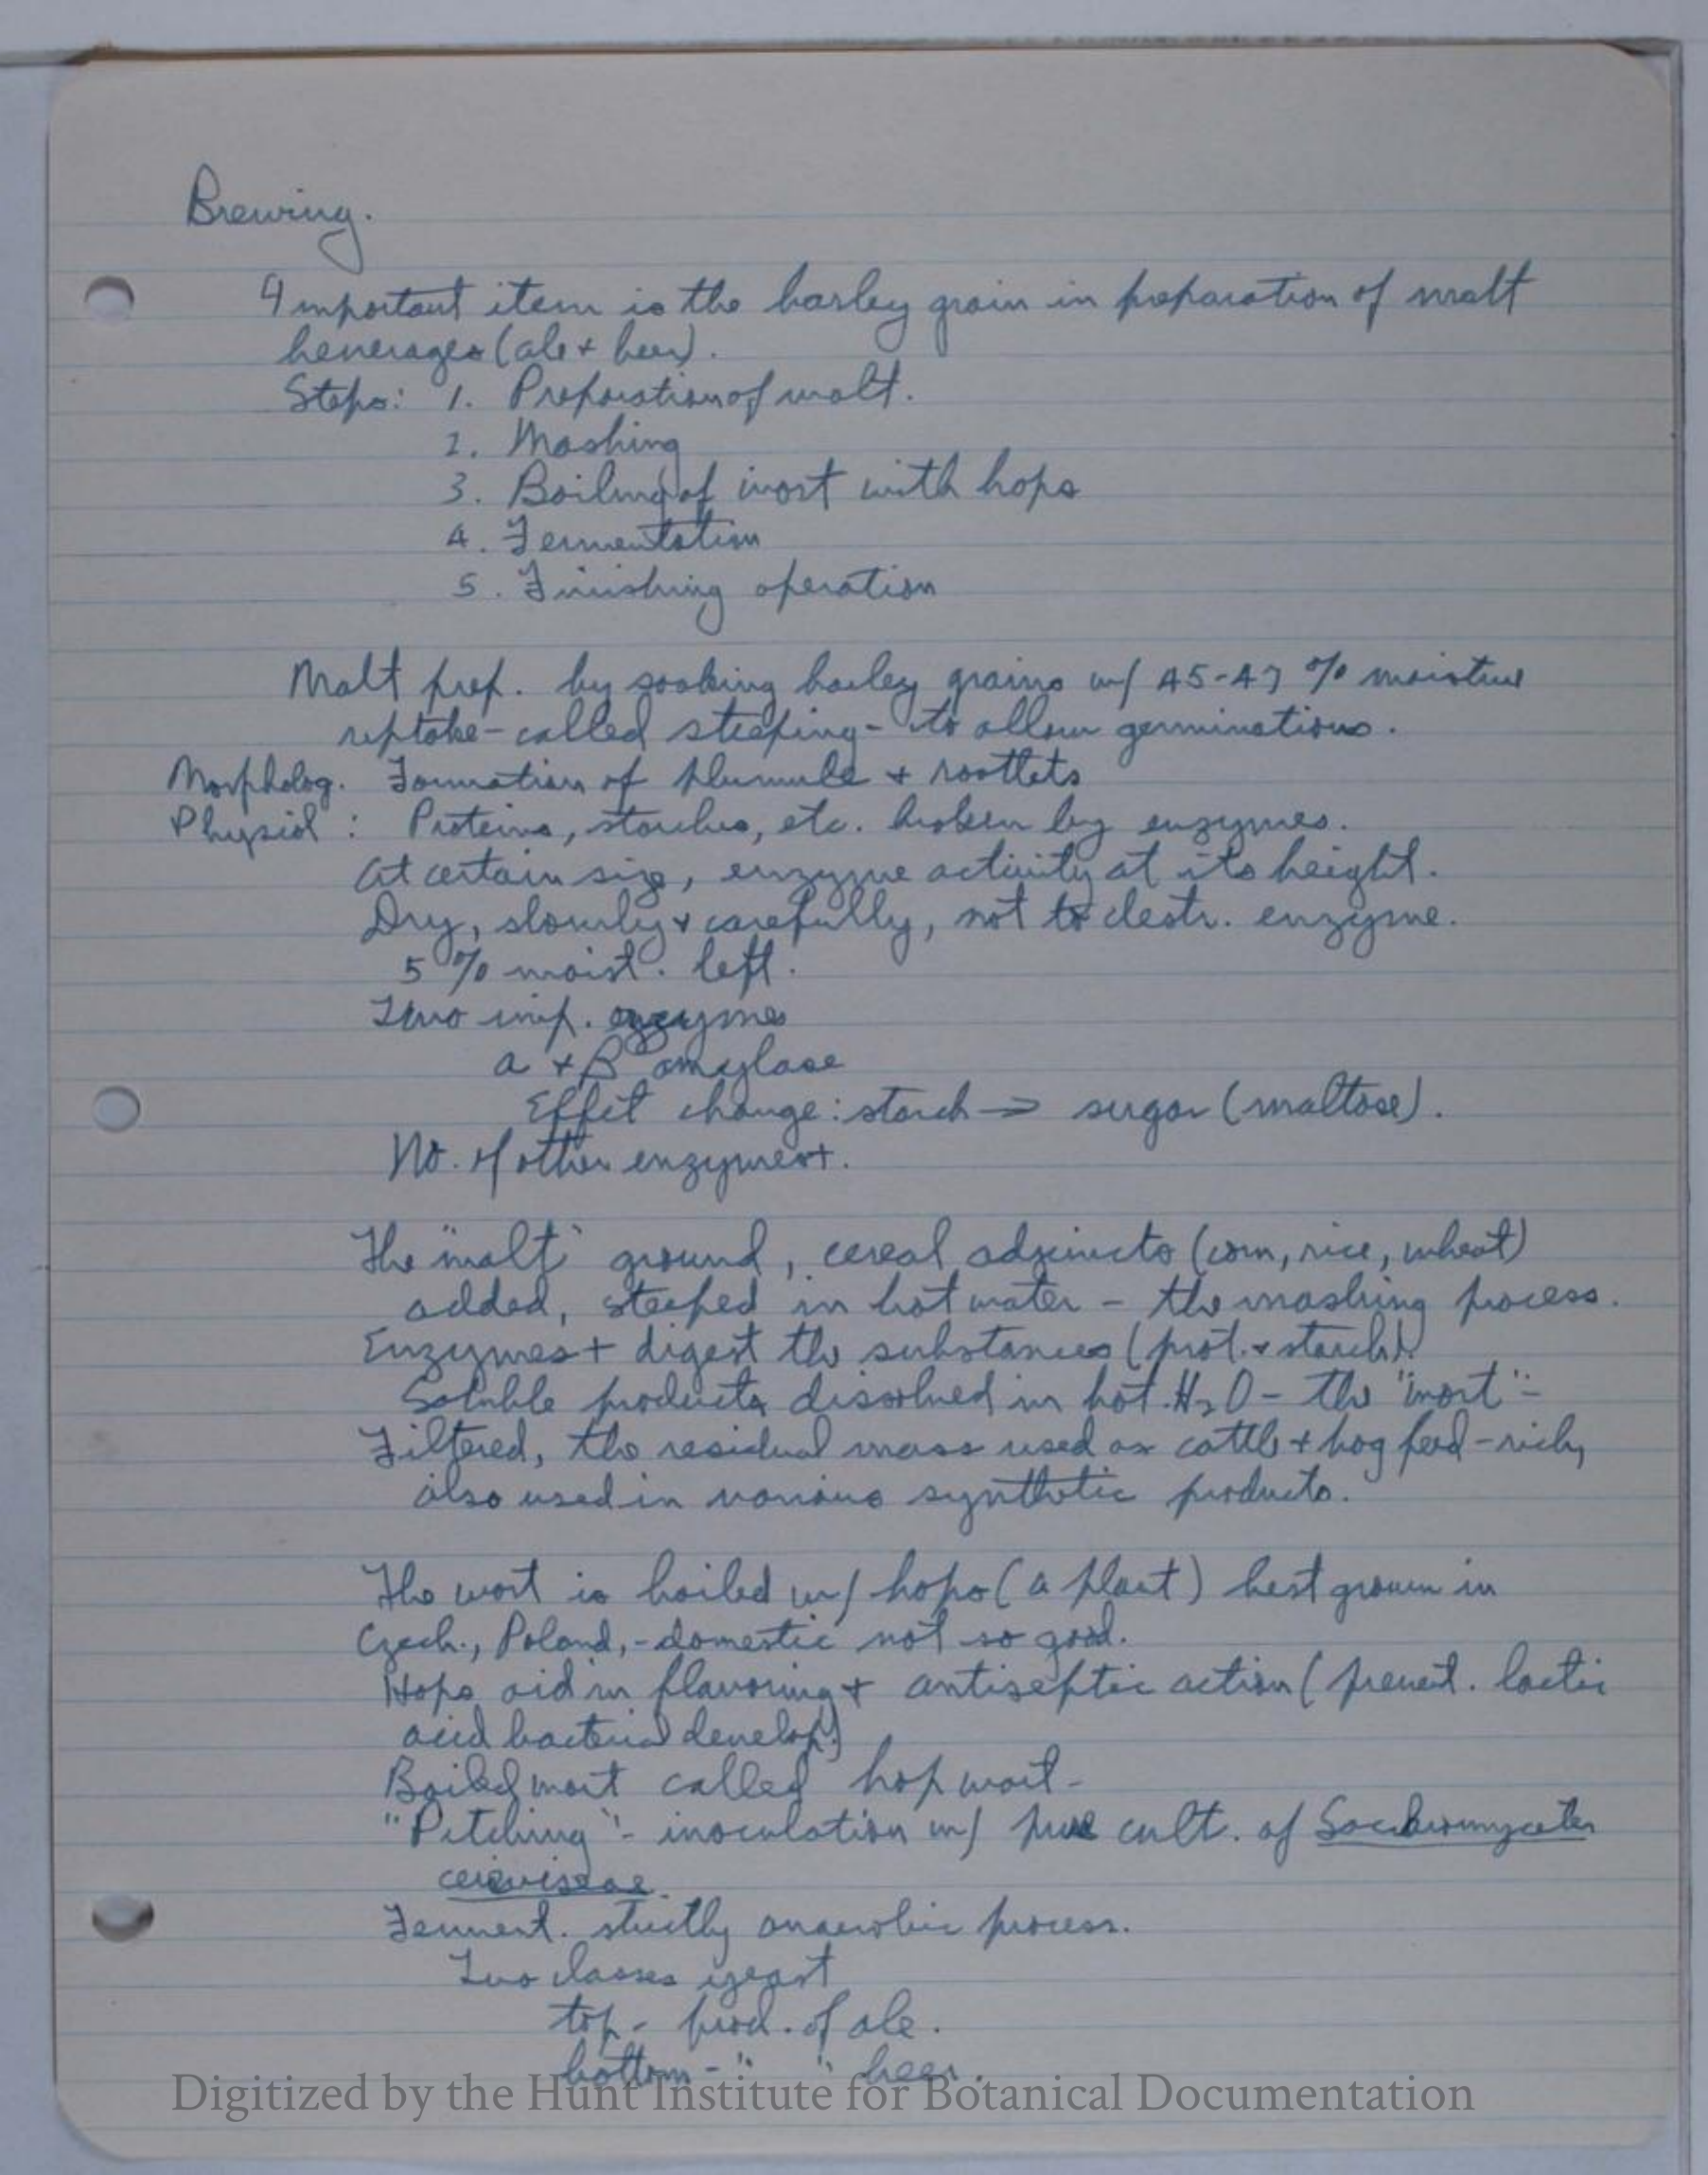 Brewing.
Important item is the barley grain in preparation of malt
beverages (ale + beer).
Steps: 1. Preparation of malt.
2. Mashing
3. Boiling of wort with hops
4. Fermentation
5. Finishing operation
Malt prep. by soaking barley grains w/ 45-47 % moisture
uptake - called steeping - to allow germinations.
Morpholog. Formation of plumule + rootlets
Physiol : Proteins, starches, etc. broken by enzymes.
At certain size, enzyme activity at its height.
Dry, slowly + carefully, not to destr. enzyme.
5 % moist. left.
Two imp. enzymes
a + B amylase
Effect change: starch → sugar (maltose).
No. of other enzymes+.
The "malt" ground, cereal adjuncts (corn, rice, wheat)
added, steeped in hot water - the mashing process.
Enzymes + digest the substances (prot. + starch).
Soluble products dissolved in hot H2O - the "wort" -
Filtered, the residual mass used as cattle + hog feed - rich,
also used in various synthetic products.
The wort is boiled w/ hops (a plant) best grown in
Czech., Poland, - domestic not so good.
Hops aid in flavoring + antiseptic action (prevent. lactic
acid bacterial develop.)
Boiled wort called hop wort -
"Pitching" - inoculation w/ pure cult. of Saccharomycetes
cereviseae.
Ferment. strictly anaerobic process.
Two classes yeast
top - prod. of ale.
bottom - " " beer.
Digitized by the Hunt Institute for Botanical Documentation